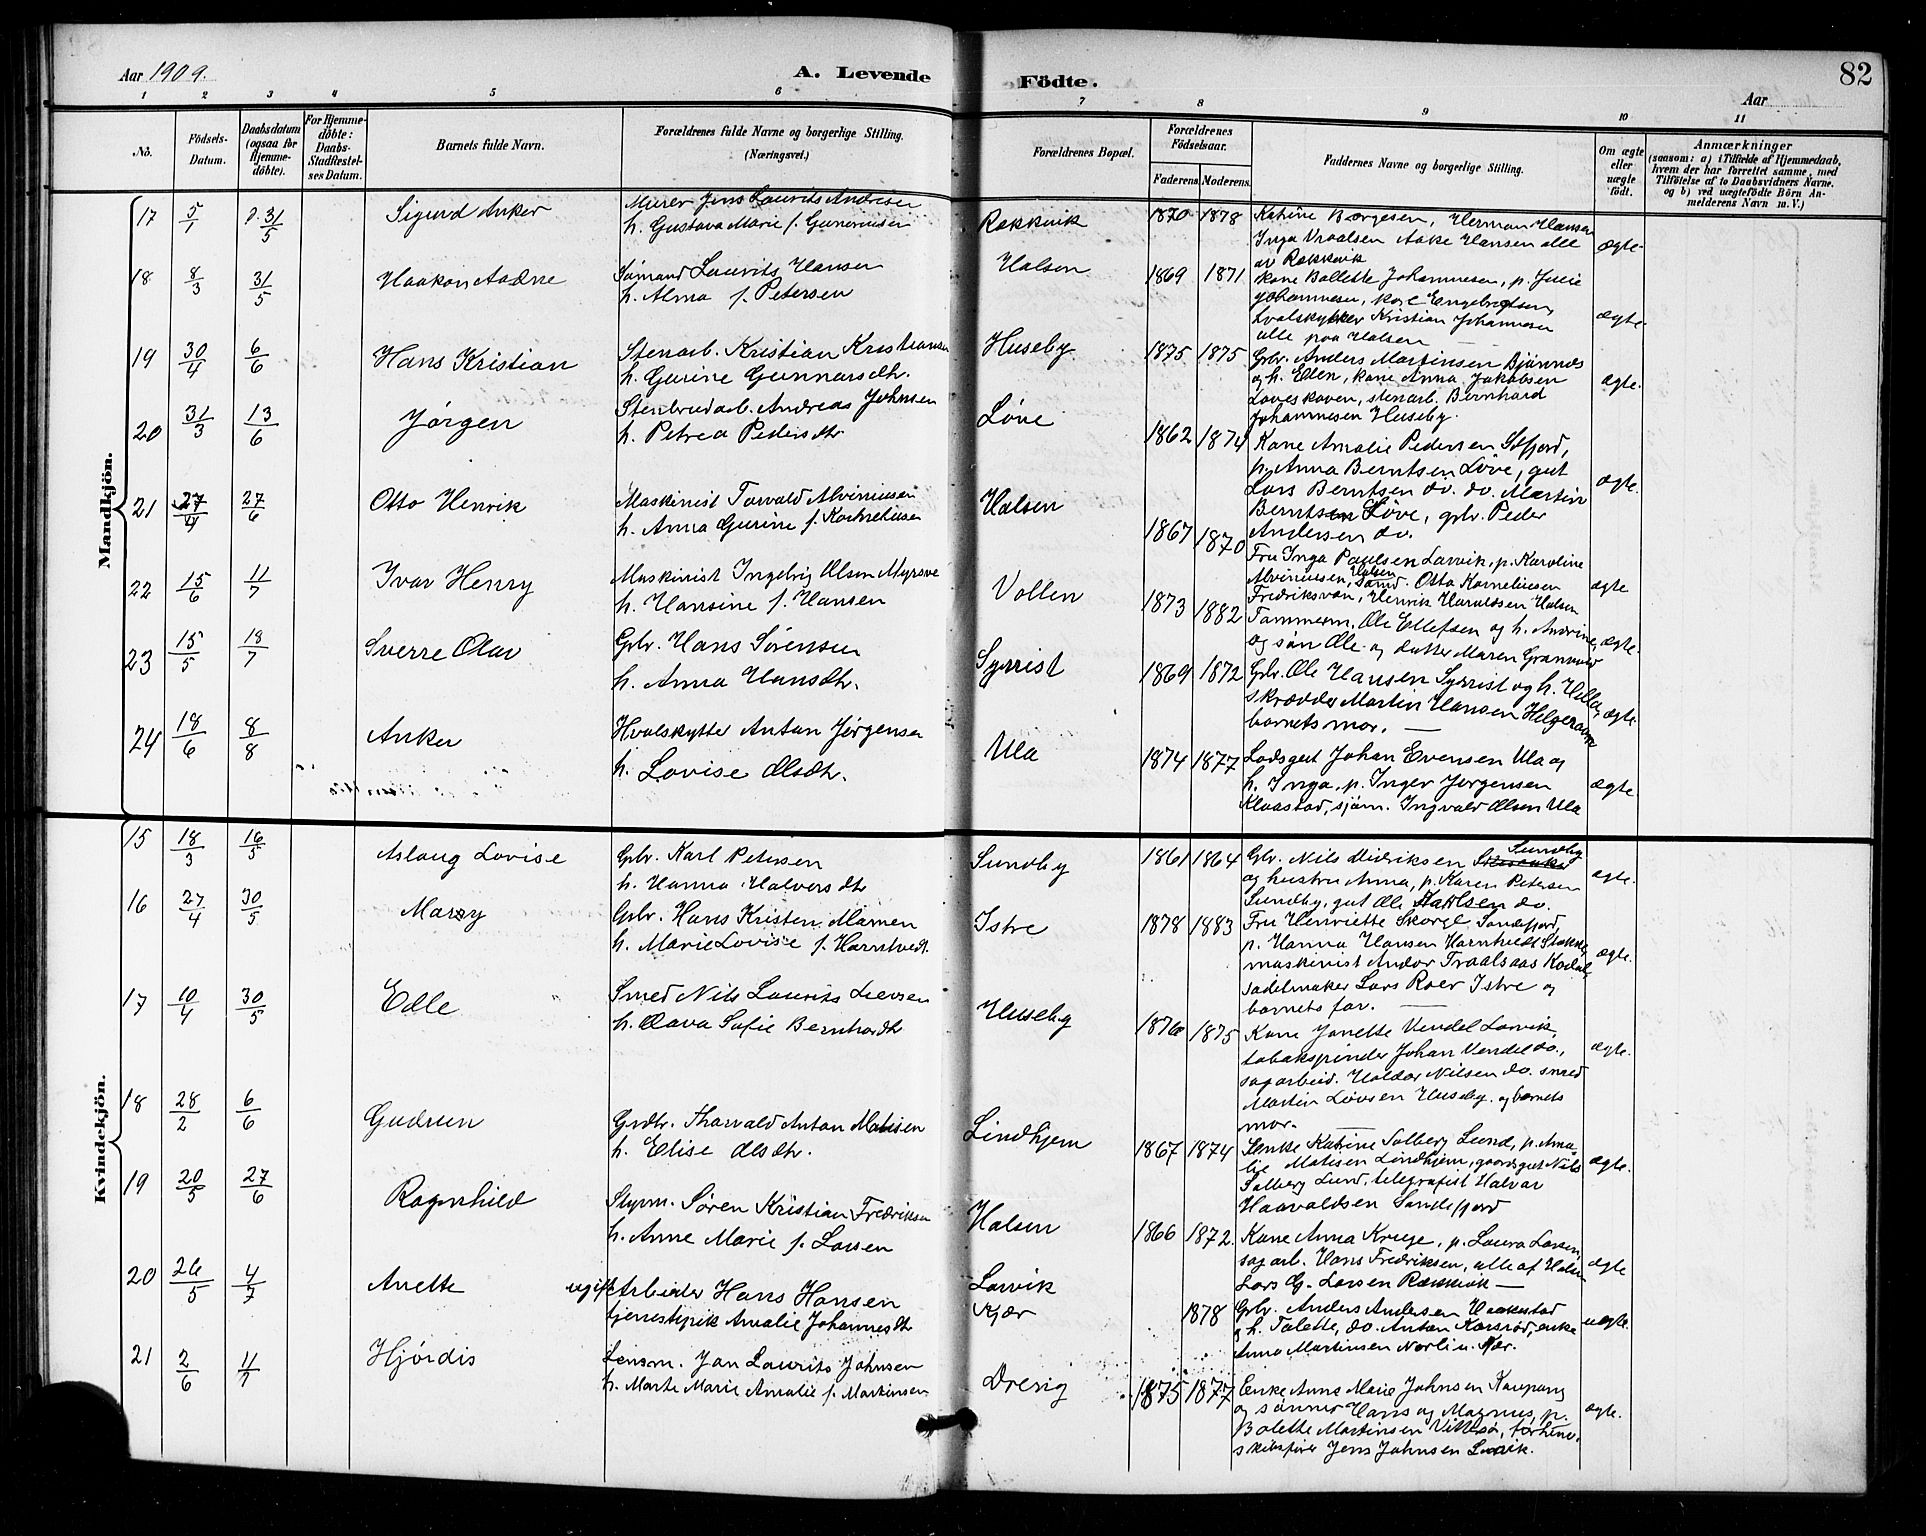 Aar 1909.
A. Levende Födte.
82
Aar
1 2 3 4 5 6 7 8 9 10 11
No.
Födsels-Datum.
Daabsdatum (ogsaa for Hjemmedöbte).
For Hjemmedöbte: Daabs-Stadfæstelses Datum.
Barnets fulde Navn.
Forældrenes fulde Navne og borgerlige Stilling. (Næringsvei.)
Forældrenes Bopæl.
Forældrenes Födselsaar.
Faderens. Moderens.
Faddernes Navne og borgerlige Stilling.
Om ægte eller uægte födt.
Anmærkninger
(saasom: a) i Tilfælde af Hjemmedaab, hvem der har forrettet samme, med Tilföielse af to Daabsvidners Navne. og b) ved uægtefödte Börn Anmelderens Navn m. V.)
Mandkjön.
17 5/1 31/5 Sigurd Anker
Murer Jens Laurits Andresen
h. Gustava Marie f. Guneriusen
Rækkevik 1870 1878
Katrine Børgesen, Herman Hansen
Inga Vraalsen Aake Hansen alle
av Rækkevik
ægte
18 8/3 31/5 Haakon Aadne
Sømand Laurits Hansen
h. Alma f. Petersen
Halsen 1869 1871
Kone Bollette Johannesen, p. Julie
Johannesen, Karl Engebretsen,
hvalskytter Kristian Johannesen
alle paa Halsen
ægte
19 30/4 6/6 Hans Kristian
Stenarb. Kristian Kristiansen
h. Gurine Gunnarsdtr.
Huseby 1875 1875
Gbr. Anders Martinsen Bjønnes
og h. Ellen, kone Anna Jakobsen
Løveskoven, stenarb. Bernhard
Johannesen Huseby.
ægte
20 31/3 13/6 Jørgen
Stenbrudarb. Andreas Johnsen
h. Petrea Pedersdtr
Løve 1862 1874
Kone Amalie Pedersen Sefjord,
p. Anna Berntsen Løve, gut
Lars Berntsen do. do. Martin
Berntsen Løve, gbr. Peder
Andersen do.
ægte.
21 27/4 27/6 Otto Henrik
Maskinist Torvald Alviniusen
h. Anna Gurine f. Korneliusen
Halsen 1867 1870
Fru Inga Paulsen Larvik, p. Karoline
Alviniusen, Halsen sømd. Otto Korneliusen
Fredriksvan, Henrik Haraldsen Halsen
ægte
22 15/6 11/7 Ivar Henry
Maskinist Ingebrig Olsen Myrsve
h. Hansine f. Hansen
Vollen 1873 1882
Tømmerm. Ole Ellefsen og h. Andrine,
og søn Ole og datter Maren Grannes
ægte.
23 15/5 18/7 Sverre Olav
Gbr. Hans Sørensen
h. Anna Hansdtr.
Syrrist 1869 1872
Gbr. Ole Hansen Syrrist og h. Hella,
skrædder Martin Hansen Helgeraaen
barnets mor.
ægte
24 18/6 8/8 Anker
Hvalskytte Anton Jørgensen
h. Lovise Olsdtr.
Ula 1874 1877
Lodsgut Johan Evensen Ula og
h. Inga, p. Inger Jørgensen
Klaastad, sjøm. Ingvald Olsen Ula
ægte
Kvindekjön.
15 18/3 16/5 Aslaug Lovise
Gbr. Karl Petersen
h. Hanna Halversdtr
Sundby 1861 1864
Gbr. Nils Didriksen Sundby
og hustru Anna, p. Karen Petersen
Sundby, gut Ole Karlsen do.
ægte.
16 27/4 30/5 Marry
Gbr. Hans Kristen Mamen
h. Marie Lovise f. Harntvedt
Istre 1878 1883
Fru Henriette Skorge Sandefjord,
p. Hanna Hansen Harntvedt Stokke,
maskinist Andor Traalsaas Kodal,
sadelmaker Lars Roer Istre og
barnets far.
ægte.
17 10/4 30/5 Edle
Smed Nils Laurits Liewsen
h. Olava Sofie Bernhardtr
Huseby 1876 1875
Kone Janette Vendel Larvik,
tobakspinder Johan Vendel do.,
sagarbeid. Haldor Nilsen do. smed
Martin Løvsen Huseby. og barnets
mor.
ægte.
18 28/2 6/6 Gudrun
Grdbr. Thorvald Anton Matisen
h. Elise Olsdtr.
Lindhjem 1867 1874
Enke Katrine Solberg Lund, p. Ama-
lie Matisen Lindhjem, gaardsgut Nils
Solberg Lund, telegrafist Halvar
Haavaldsen Sandefjord
ægte.
19 20/5 27/6 Ragnhild
Styrm. Søren Kristian Fredriksen
h. Anne Marie f. Larsen
Halsen 1866 1872.
Kone Anna Kruge, p. Laura Larsen,
sagarb. Hans Fredriksen, alle af Halsen
Lars G. Larsen Rækkevik
ægte
20 26/5 4/7 Anette
ugift Arbeider Hans Hansen
tjenestepik Amalie Johannesdtr
Larvik
Kjær 1878
Gbr. Anders Andersen Haakestad
og h. Talette, do. Anton Korsrød, enke
Anna Martinsen Nørli u. Kjær.
uægte.
21 2/6 11/7 Hjørdis
Lensm. Jan Laurits Johnsen
h. Marte Marie Amalie f. Martinsen
Dreng 1875 1877
Enke Anne Marie Johnsen Kaupang
og sønner Hans og Magnus, p.
Bolette Martinsen Vittersø, forhenv.
skibsfører Jens Johnsen Larvik.
ægte.